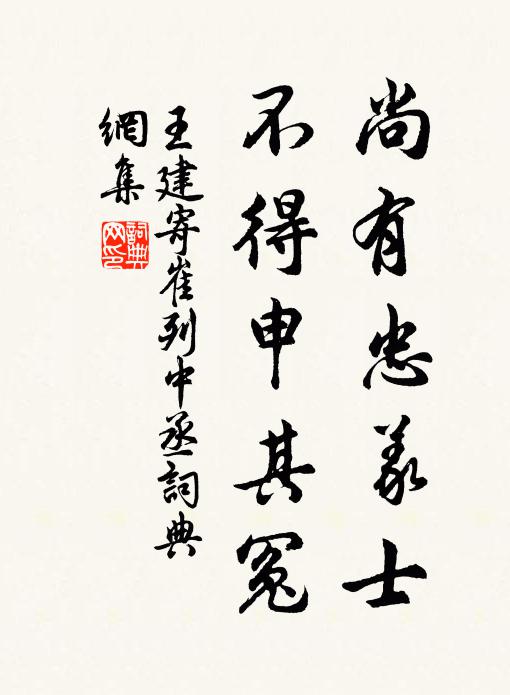 尚有忠義士
不得申其冤
王建寄崔列中丞詞典
網集
詞典网印